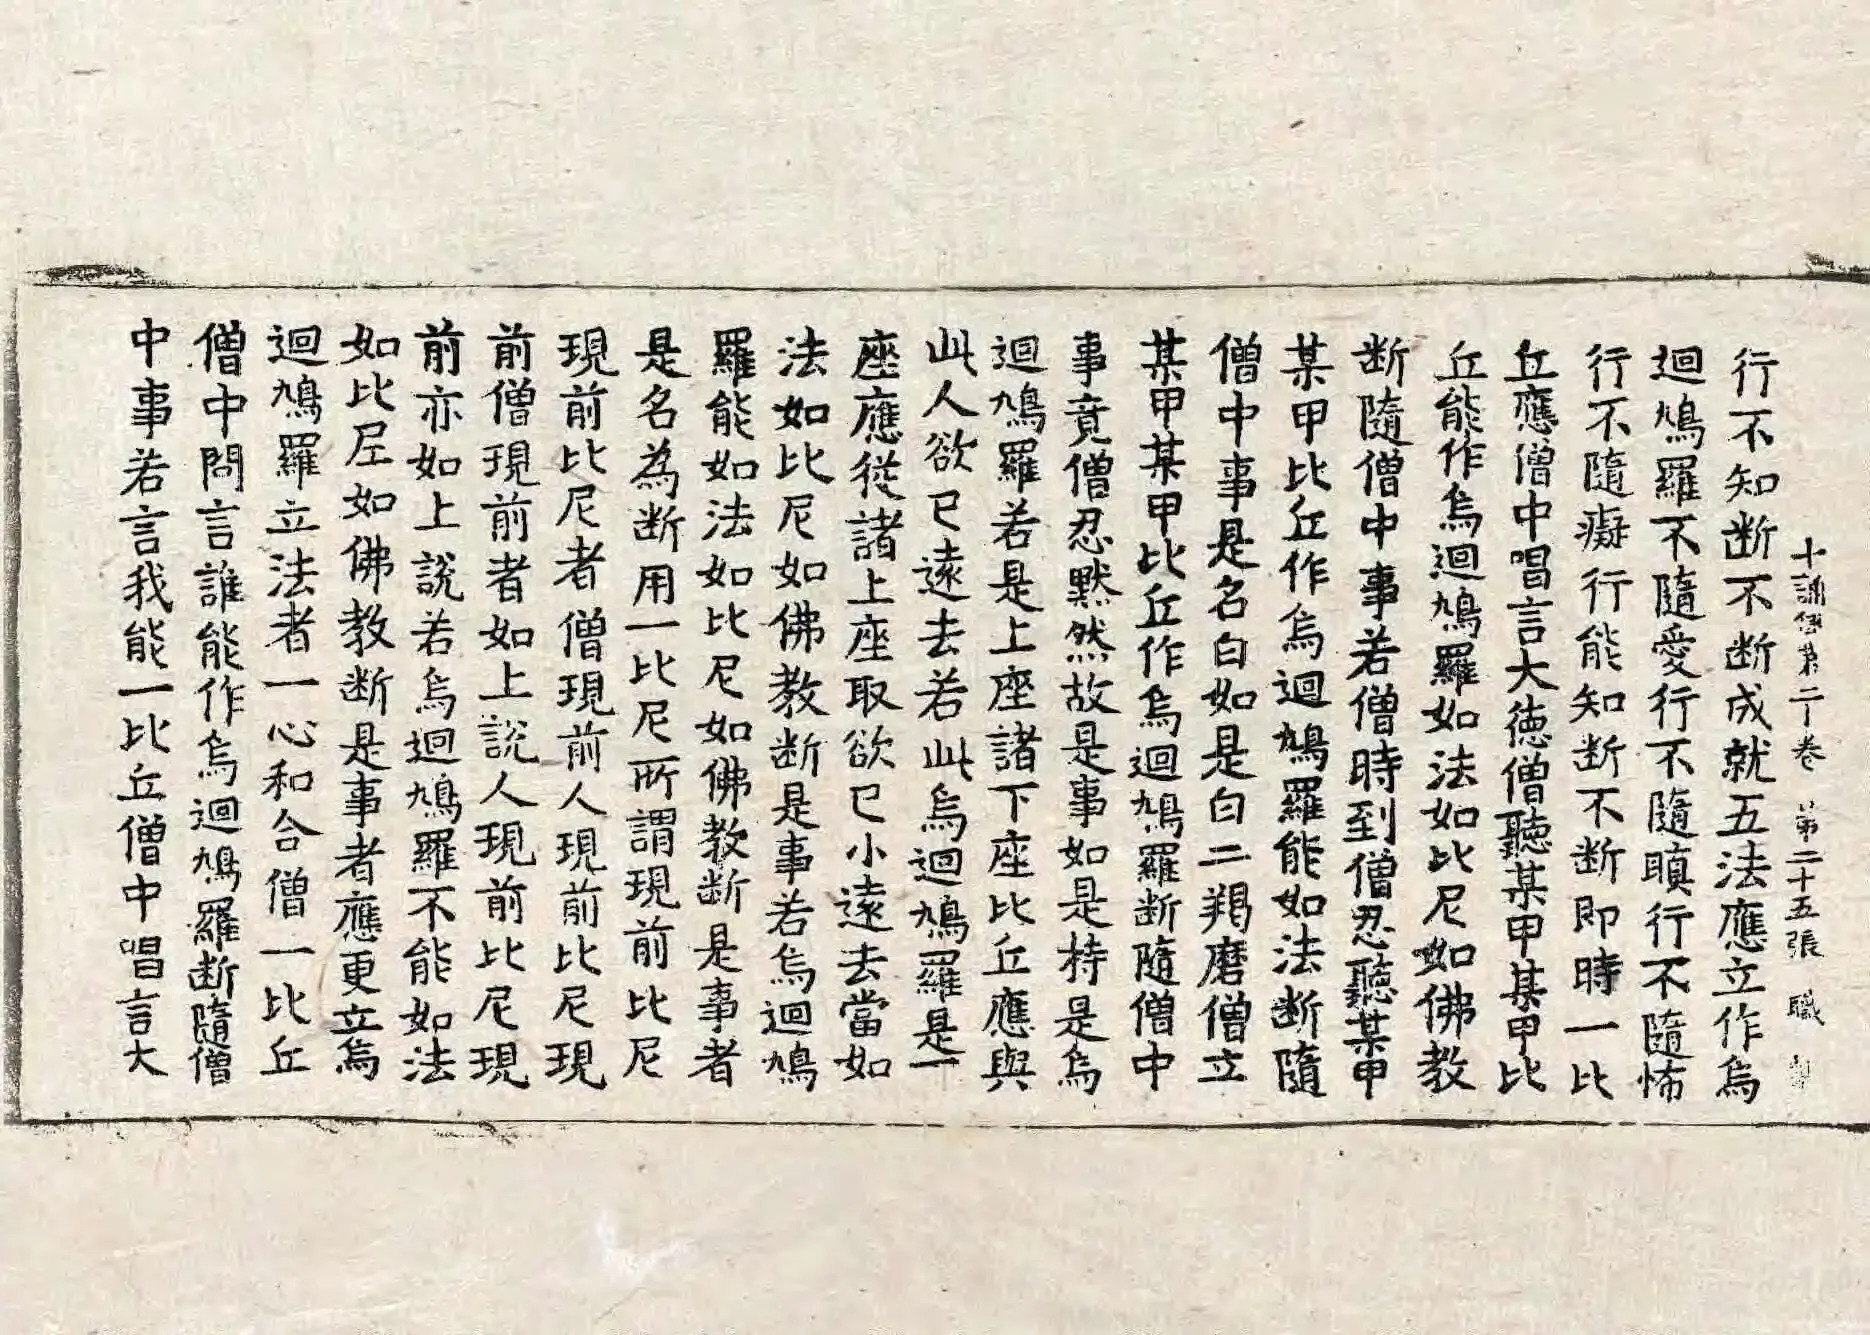 十誦律第二十卷 第二十五張 職
行不知断不断成就五法應立作烏
迴鳩羅不隨愛行不隨瞋行不隨怖
行不隨癡行能知断不断即時一比
丘應僧中唱言大德僧聽某甲某甲比
丘能作烏迴鳩羅如法如比尼如佛教
断隨僧中事若僧時到僧忍聽某甲
某甲比丘作烏迴鳩羅能如法断隨
僧中事是名白如是白二羯磨僧立
某甲某甲比丘作烏迴鳩羅断隨僧中
事竟僧忍默然故是事如是持是烏
迴鳩羅若是上座諸下座比丘應與
此人欲已遠去若此烏迴鳩羅是一
座應從諸上座取欲已小遠去當如
法如比尼如佛教断是事若烏迴鳩
羅能如法如比尼如佛教断是事者
是名為断用一比尼所謂現前比尼
現前比尼者僧現前人現前比尼現
前僧現前者如上說人現前比尼現
前亦如上說若烏迴鳩羅不能如法
如比尼如佛教断是事者應更立烏
迴鳩羅立法者一心和合僧一比丘
僧中問言誰能作烏迴鳩羅断隨僧
中事若言我能一比丘僧中唱言大